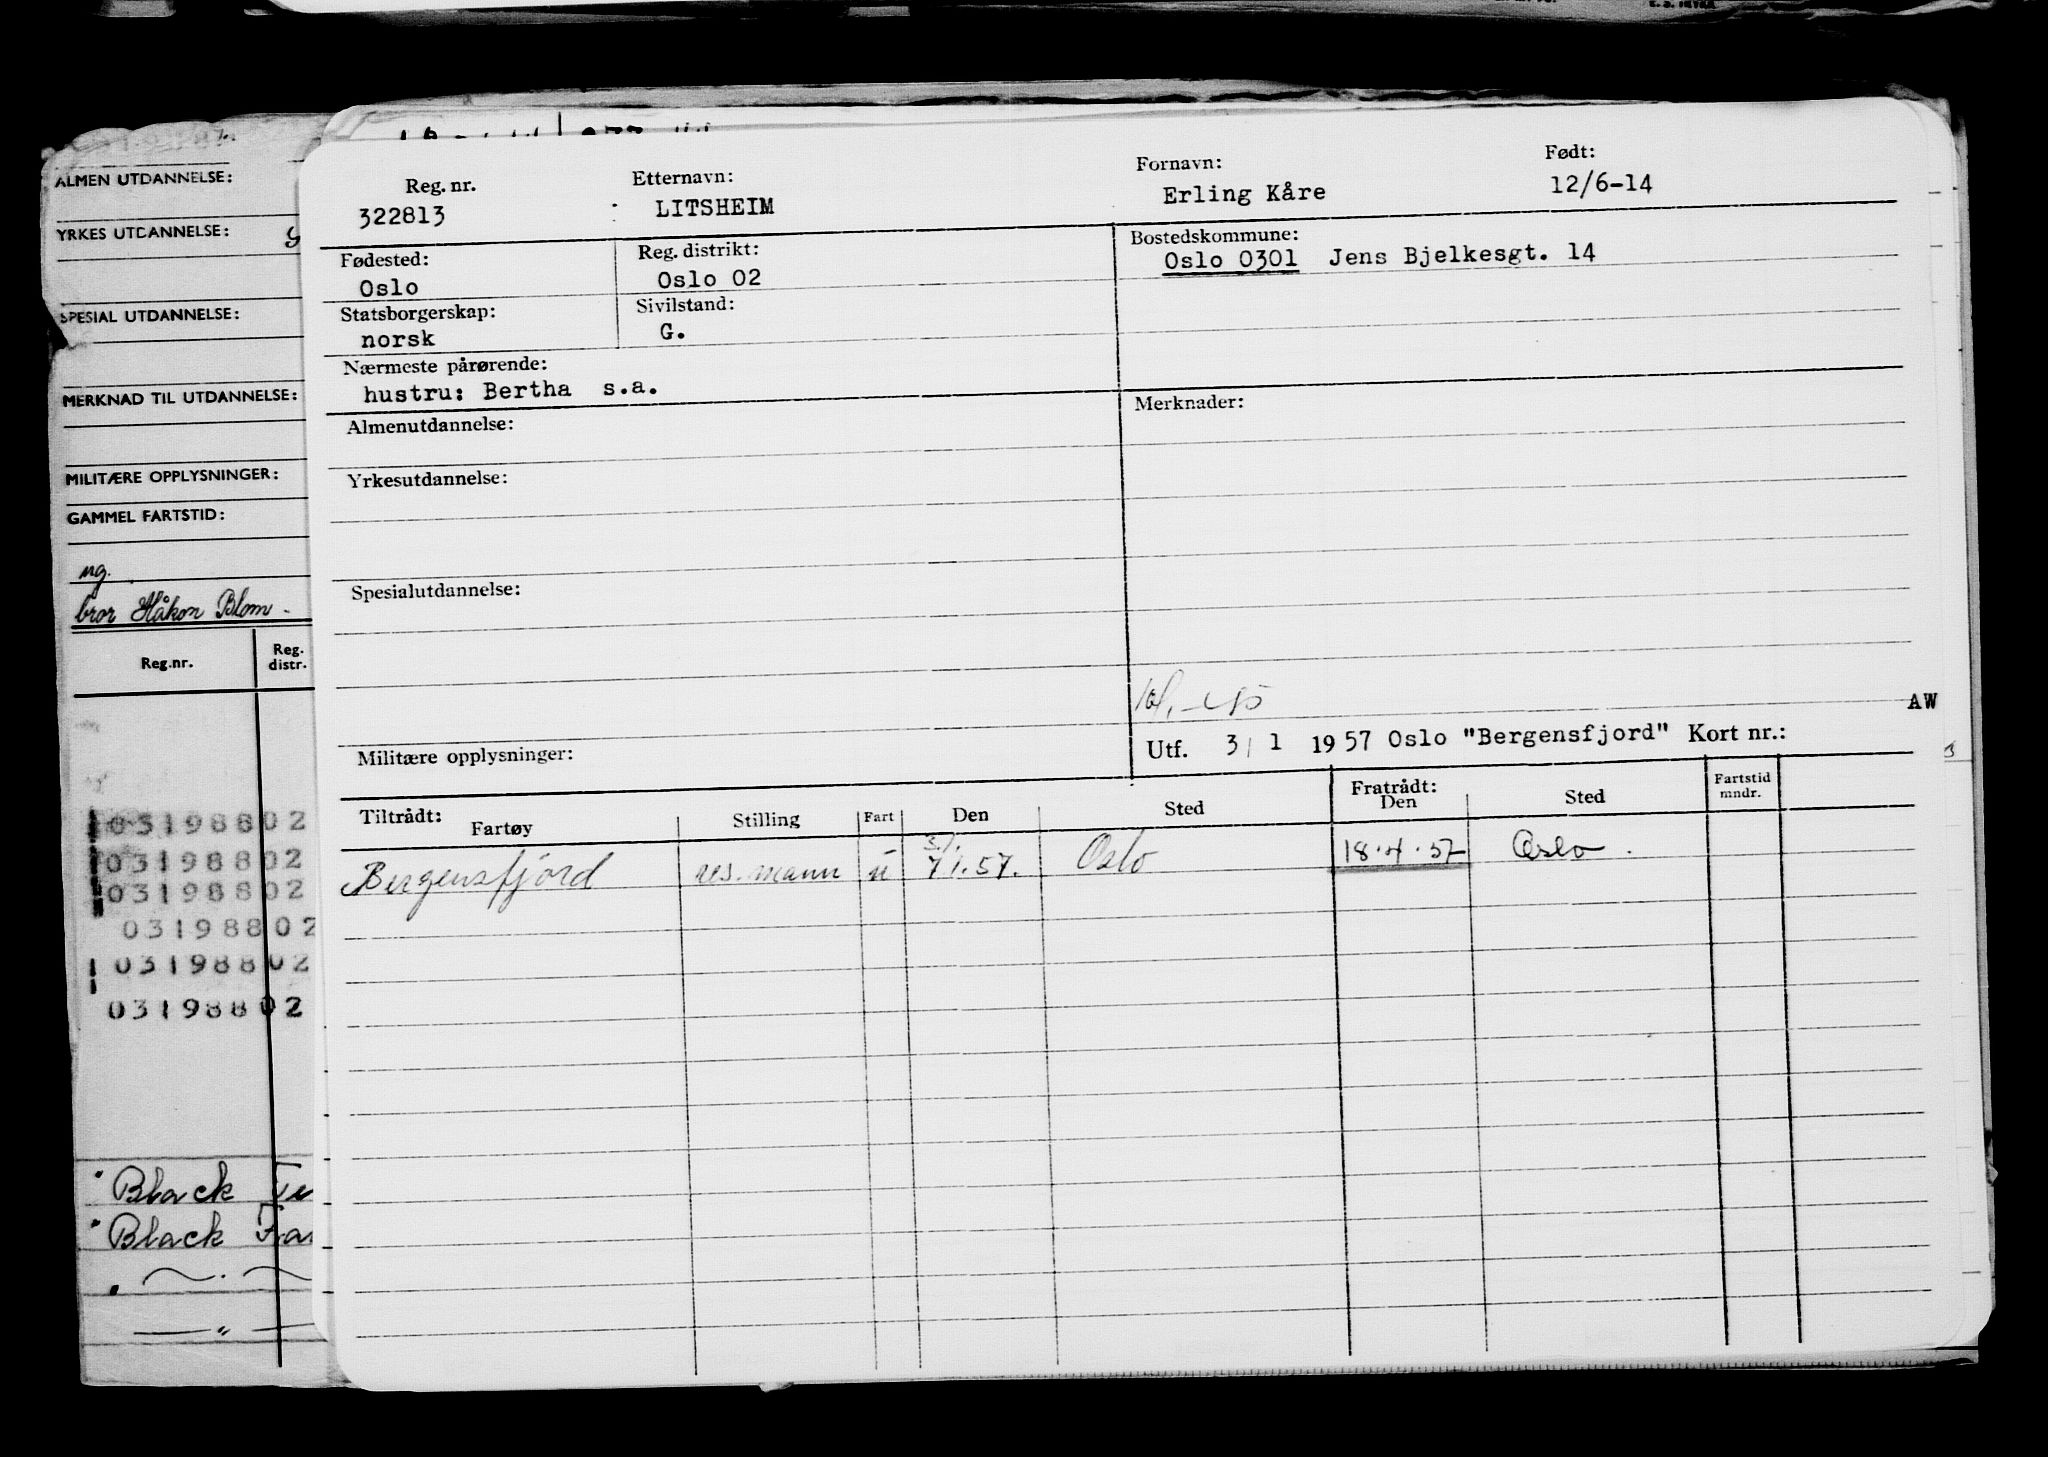 ALMEN UTDANNELSE:
YRKES UTDANNELSE:
SPESIAL UTDANNELSE:
MERKNAD TIL UTDANNELSE:
MILITÆRE OPPLYSNINGER:
GAMMEL FARTSTID:
ug.
bror Håkon Blom -
Reg.nr. Reg. distr.
03198802
03198802
03198802
03198802
03198802
03198802
Black
Black
Reg. nr. Etternavn: Fornavn: Født:
322813 LITSHEIM Erling Kåre 12/6-14
Fødested: Reg. distrikt: Bostedskommune:
Oslo Oslo 02 Oslo 0301 Jens Bjelkesgt. 14
Statsborgerskap: Sivilstand:
norsk G.
Nærmeste pårørende:
hustru: Bertha s.a.
Almenutdannelse: Merknader:
Yrkesutdannelse:
Spesialutdannelse:
AW
Militære opplysninger: Utf. 3/1 1957 Oslo "Bergensfjord" Kort nr.:
Tiltrådt: Fartøy Stilling Fart Den Sted Fratrådt: Den Sted Fartstid mndr.
Bergensfjord res. mann u 7.1.57. Oslo 18.4.57 Oslo.